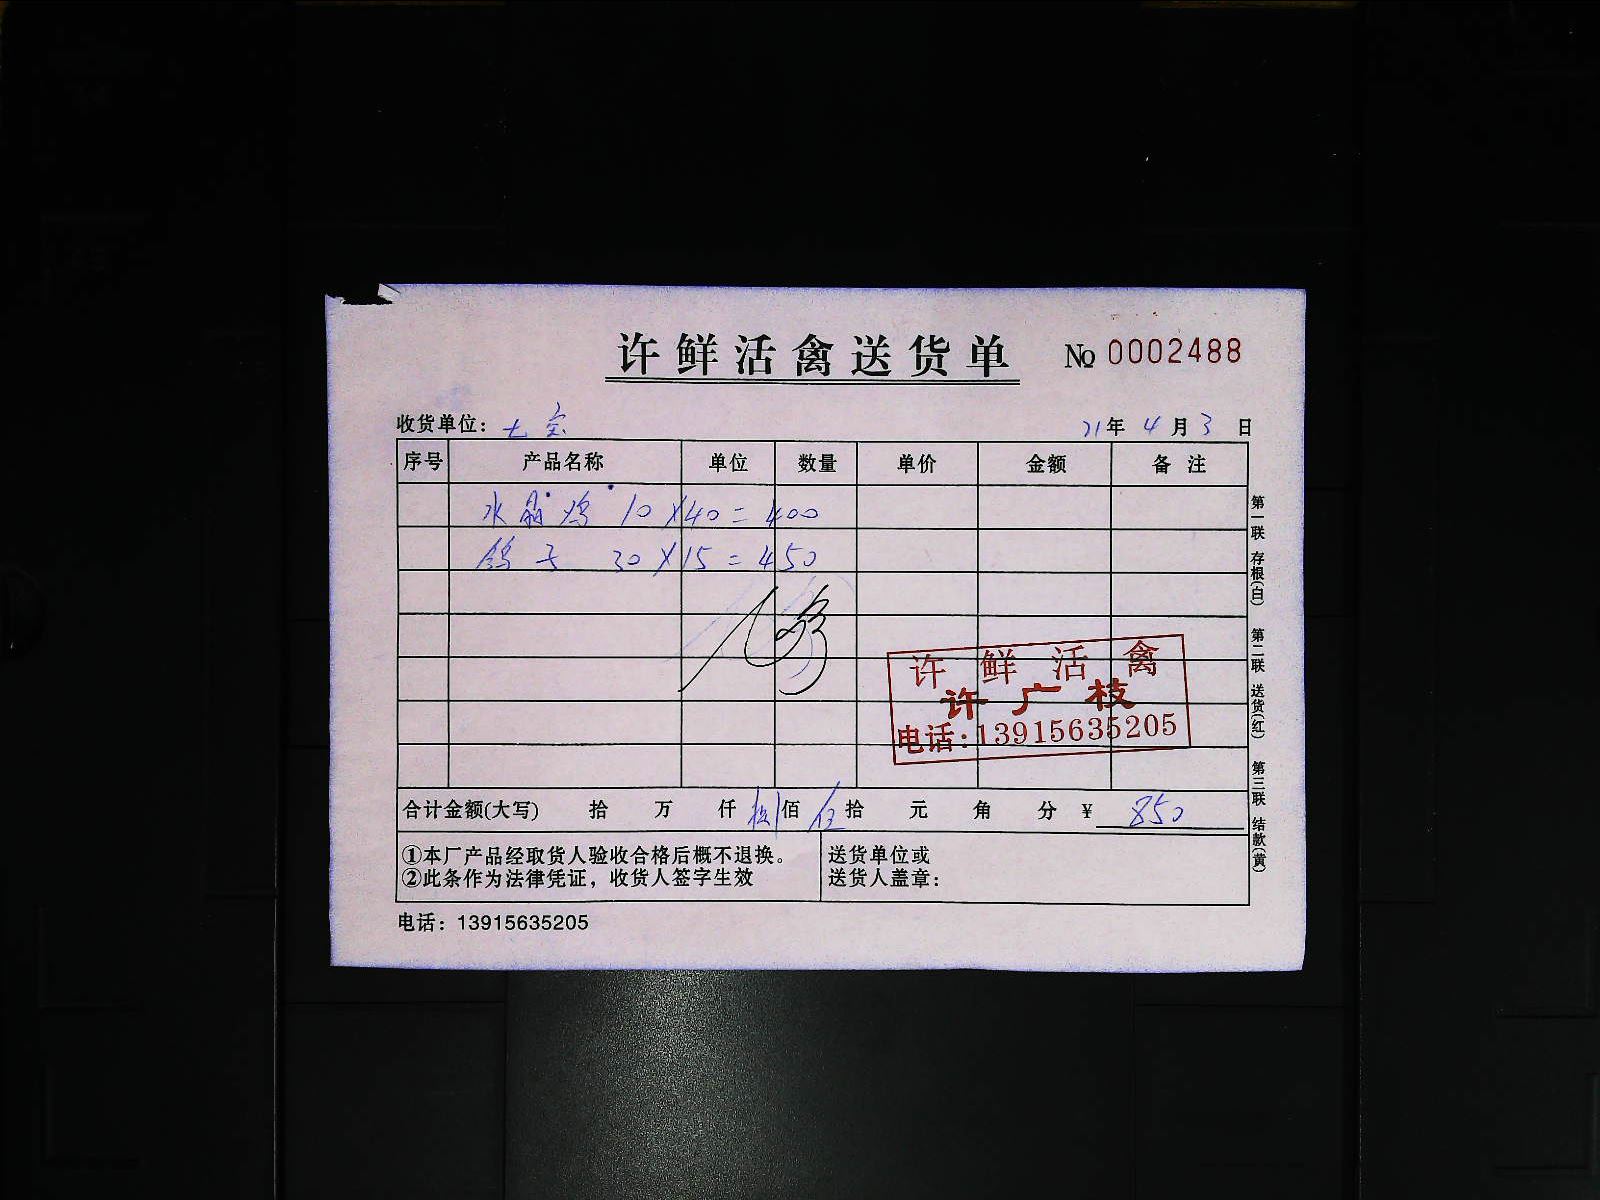 许鲜活禽送货单 № 0002488
收货单位： 21年 4月 3日
序号 产品名称 单位 数量 单价 金额 备注
水晶鸡 10×40=400
鸽子 30×15=450
许鲜活禽
许广枝
电话:13915635205
合计金额(大写) 拾 万 仟 捌佰 伍拾 元 角 分 ¥ 850
①本厂产品经取货人验收合格后概不退换。
②此条作为法律凭证，收货人签字生效
送货单位或
送货人盖章：
电话：13915635205
第一联 存根(白) 第二联 送货(红) 第三联 结款(黄)